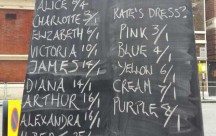 ALICE 9/4
CHARLOTTE 5/1
ELIZABETH 6/1
VICTORIA 19/1
JAMES 14/1
DIANA 14/1
ARTHUR 16/1
ALEXANDRA 16/1
KATE'S DRESS?
PINK 3/1
BLUE 4/1
YELLOW 6/1
CREAM 7/1
PURPLE 8/1